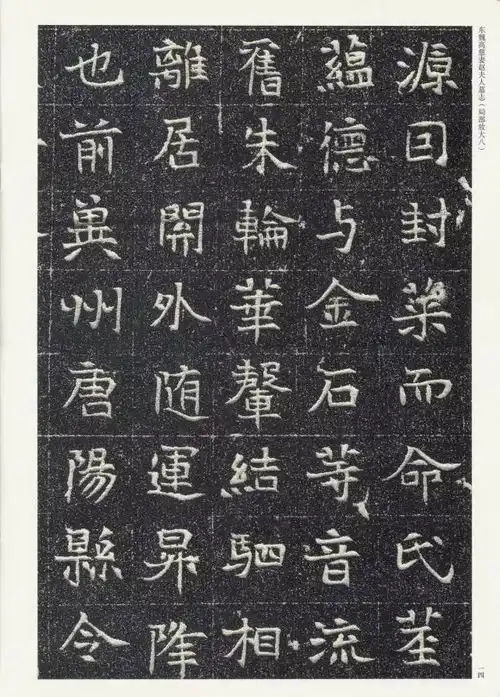 东魏高慈妻赵夫人墓志（局部放大八）
源囙封菜而命氏
蘊德与金石等音流
舊朱輪華輦結駟相
離居開外随運昇降
也前兾州唐陽縣令
一四